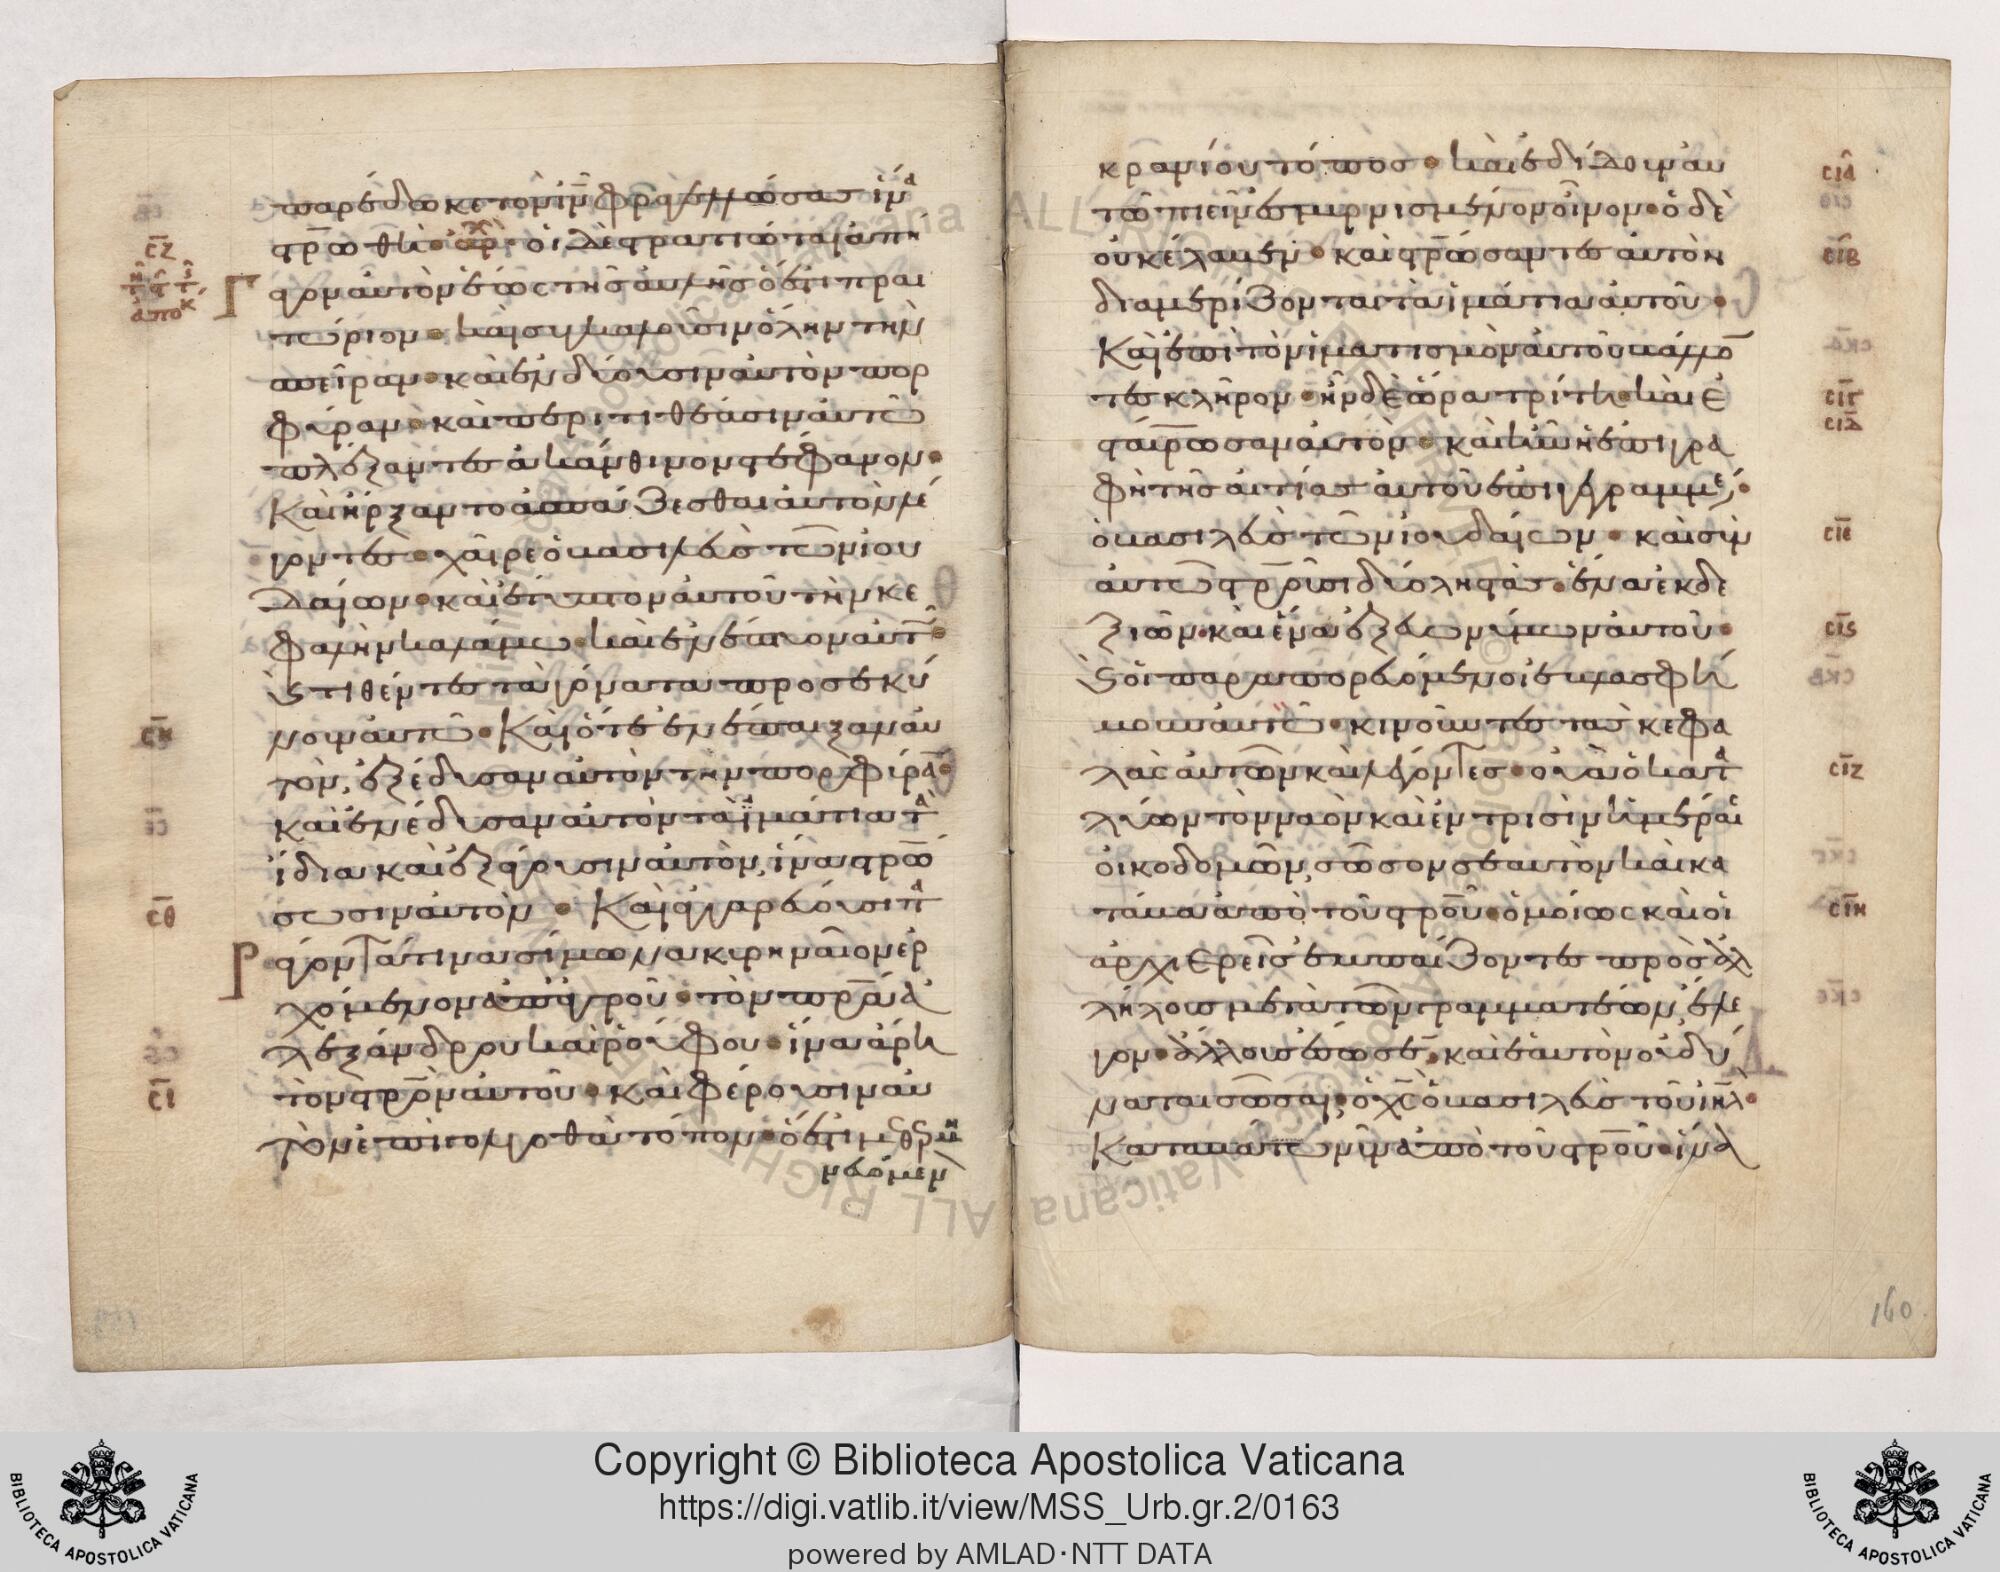 παρέδωκε τὸν ιν̅ φραγελλώσας ἵνα
στρ̅ωθῆ· αρχ· οἱ δὲ στρατιῶται ἀπή
σζ
γον αὐτὸν ἔσω τῆς αὐλῆς ὅ ἐστι πραι
τώριον· καὶ συγκαλοῦσιν ὅλην τὴν
σπεῖραν· καὶ ἐνδύουσιν αὐτὸν πορ
φύραν· καὶ περιτιθέασιν αὐτῶ
πλέξαντες ἀκάνθινον στέφανον·
Καὶ ἤρξαντο ἀσπάζεσθαι αὐτὸν λέ
γοντες· χαῖρε ὁ βασιλεὺς τῶν ἰου
δαίων· καὶ ἔτυπτον αὐτοῦ τὴν κε
φαλὴν καλάμω· καὶ ἐνέπτυον αὐτῶ·
Ϛ τιθέντες τὰ γόνατα προσεκύ
νουν αὐτῶ· Καὶ ὅτε ἐνέπαιξαν αὐ
ση
τῶ, ἐξέδυσαν αὐτὸν τὴν πορφύραν·
καὶ ἐνέδυσαν αὐτὸν τὰ ἱμάτια τὰ
ἴδια καὶ ἐξάγουσιν αὐτὸν, ἵνα στρ̅ώ
σωσιν αὐτὸν· Καὶ ἀγγαρεύουσι πα
σθ
ράγοντά τινα σίμωνα κυρηναῖον ἐρ
χόμενον ἀπ' ἀγροῦ· τὸν πρ̅α ἀ
λεξάνδρου καὶ ῥούφου· ἵνα ἄρη
τὸν στρ̅ὸν αὐτοῦ· καὶ φέρουσιν αὐ
σι
τὸν ἐπὶ γολγοθᾶ τόπον· ὅ ἐστι μεθερμη
νευόμενον
κρανίου τόπος· καὶ ἐδίδουν αὐ
σια
τῶ πιεῖν ἐσμυρνισμένον οἶνον· ὁ δὲ
οὐκ ἔλαβεν· καὶ στρ̅ώσαντες αὐτὸν
σιβ
διαμερίζονται τὰ ἱμάτια αὐτοῦ·
Καὶ ἐπὶ τὸν ἱματισμὸν αὐτοῦ βάλλον
τες κλῆρον· ἦν δὲ ὥρα τρίτη· καὶ ἐ
σιγ
σταύρωσαν αὐτὸν· καὶ ἦν ἡ ἐπιγρα
σιδ
φὴ τῆς αἰτίας αὐτοῦ ἐπιγεγραμμένη·
ὁ βασιλεὺς τῶν ἰουδαίων· καὶ σὺν
σιε
αὐτῶ στρ̅οῦσι δύο ληστάς· ἕνα ἐκ δε
ξιῶν· καὶ ἕνα ἐξ εὐωνύμων αὐτοῦ·
σιϛ
Ϛ οἱ παραπορευόμενοι ἐβλασφή
μουν αὐτῶ· κινοῦντες τὰς κεφα
λὰς αὐτῶν καὶ λέγοντες· οὐὰ ὁ κατα
σιζ
λύων τὸν ναὸν καὶ ἐν τρισὶν ἡμέραις
οἰκοδομῶν, σῶσον σεαυτὸν καὶ κα
τάβα ἀπὸ τοῦ στρ̅οῦ· ὁμοίως καὶ οἱ
σιη
ἀρχιερεῖς ἐμπαίζοντες πρὸς ἀλ
λήλους μετὰ τῶν γραμματέων, ἔλε
γον· ἄλλους ἔσωσεν· καὶ ἑαυτὸν οὐ δύ
ναται σῶσαι, ὁ χς̅ ὁ βασιλεὺς τοῦ ιηλ̅·
Καταβάτω νῦν ἀπὸ τοῦ στρ̅οῦ· ἵνα
160
Copyright © Biblioteca Apostolica Vaticana
https://digi.vatlib.it/view/MSS_Urb.gr.2/0163
powered by AMLAD·NTT DATA
BIBLIOTECA APOSTOLICA VATICANA
BIBLIOTECA APOSTOLICA VATICANA